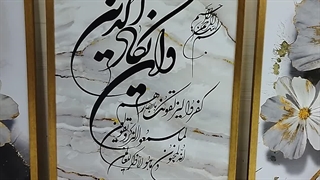 بسم الله الرحمن الرحیم
وان یکاد الذین
کفروا لیزلقونک بابصارهم
لما سمعوا الذکر و یقولون
انه لمجنون
و ما هو الا ذکر للعالمین